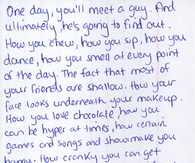 One day, you'll meet a guy. And
ultimately, he's going to find out.
How you chew, how you sip, how you
dance, how you smell at every point
of the day. The fact that most of
your friends are shallow. How your
face looks underneath your makeup.
How you love chocolate, how you
can be hyper at times, how certain
games and songs and shows make you
happy. How cranky you can get